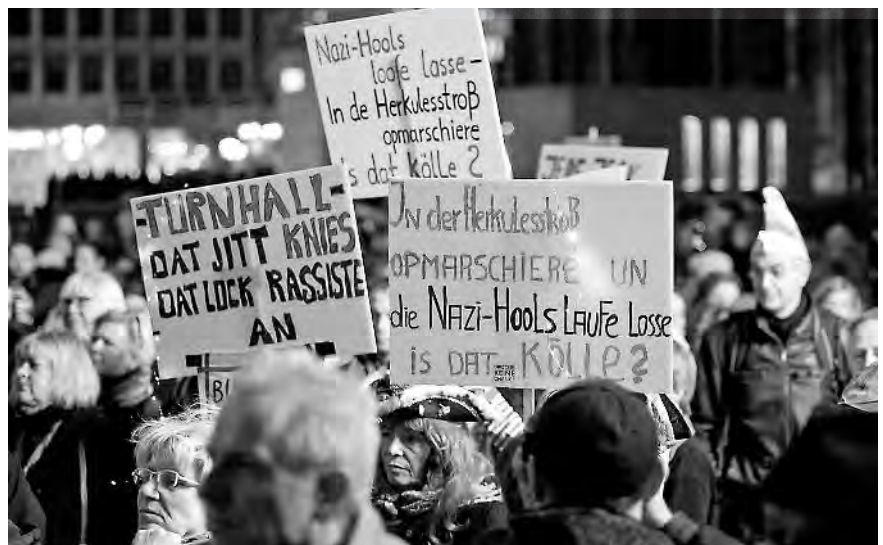 Nazi-Hools
loofe lasse-
In de Herkulesstroß
opmarschiere
is dat Kölle?
-TURNHALL-
DAT JITT KNIES
DAT LOCK RASSISTE
AN
IN der Herkulesstroß
OPMARSCHIERE UN
die NAZI-HOOLS LAUFE Losse
is DAT KÖLLE?